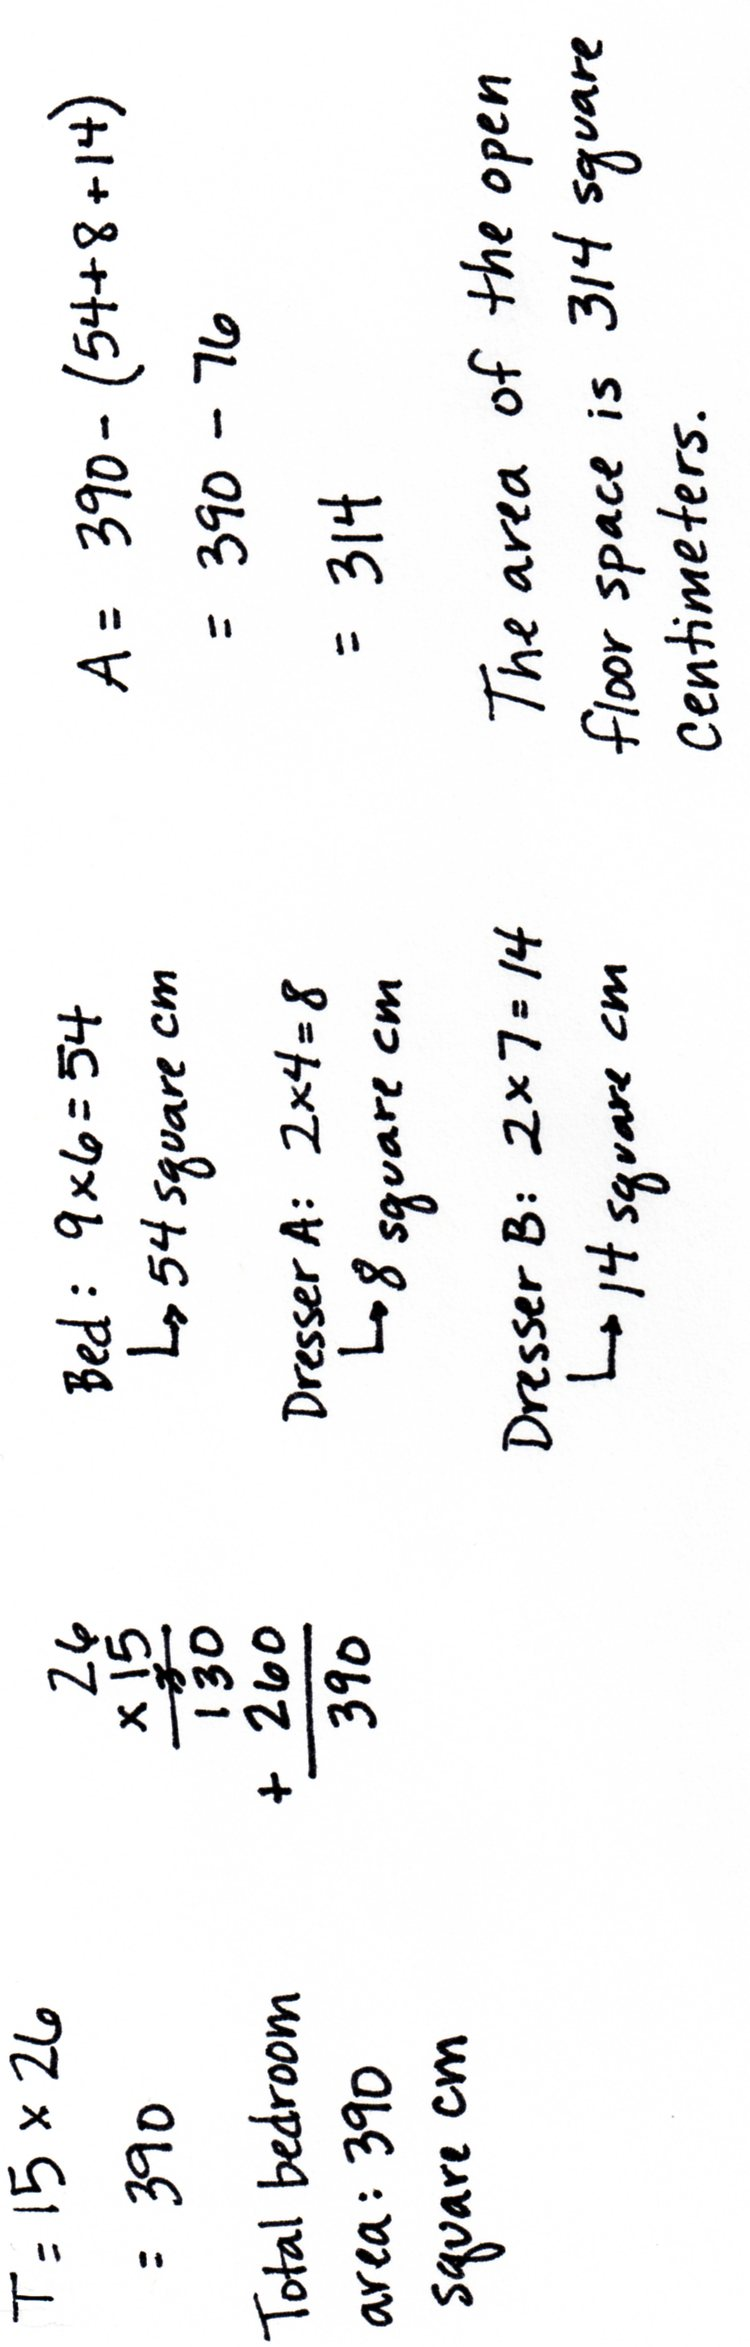 T = 15 x 26
= 390
Total bedroom
area: 390
square cm
26
x 15
3
130
+ 260
390
Bed: 9 x 6 = 54
↳ 54 square cm
Dresser A: 2x4=8
↳ 8 square cm
Dresser B: 2 x 7 = 14
↳ 14 square cm
A = 390 - (54+8+14)
= 390 - 76
= 314
The area of the open
floor space is 314 square
centimeters.